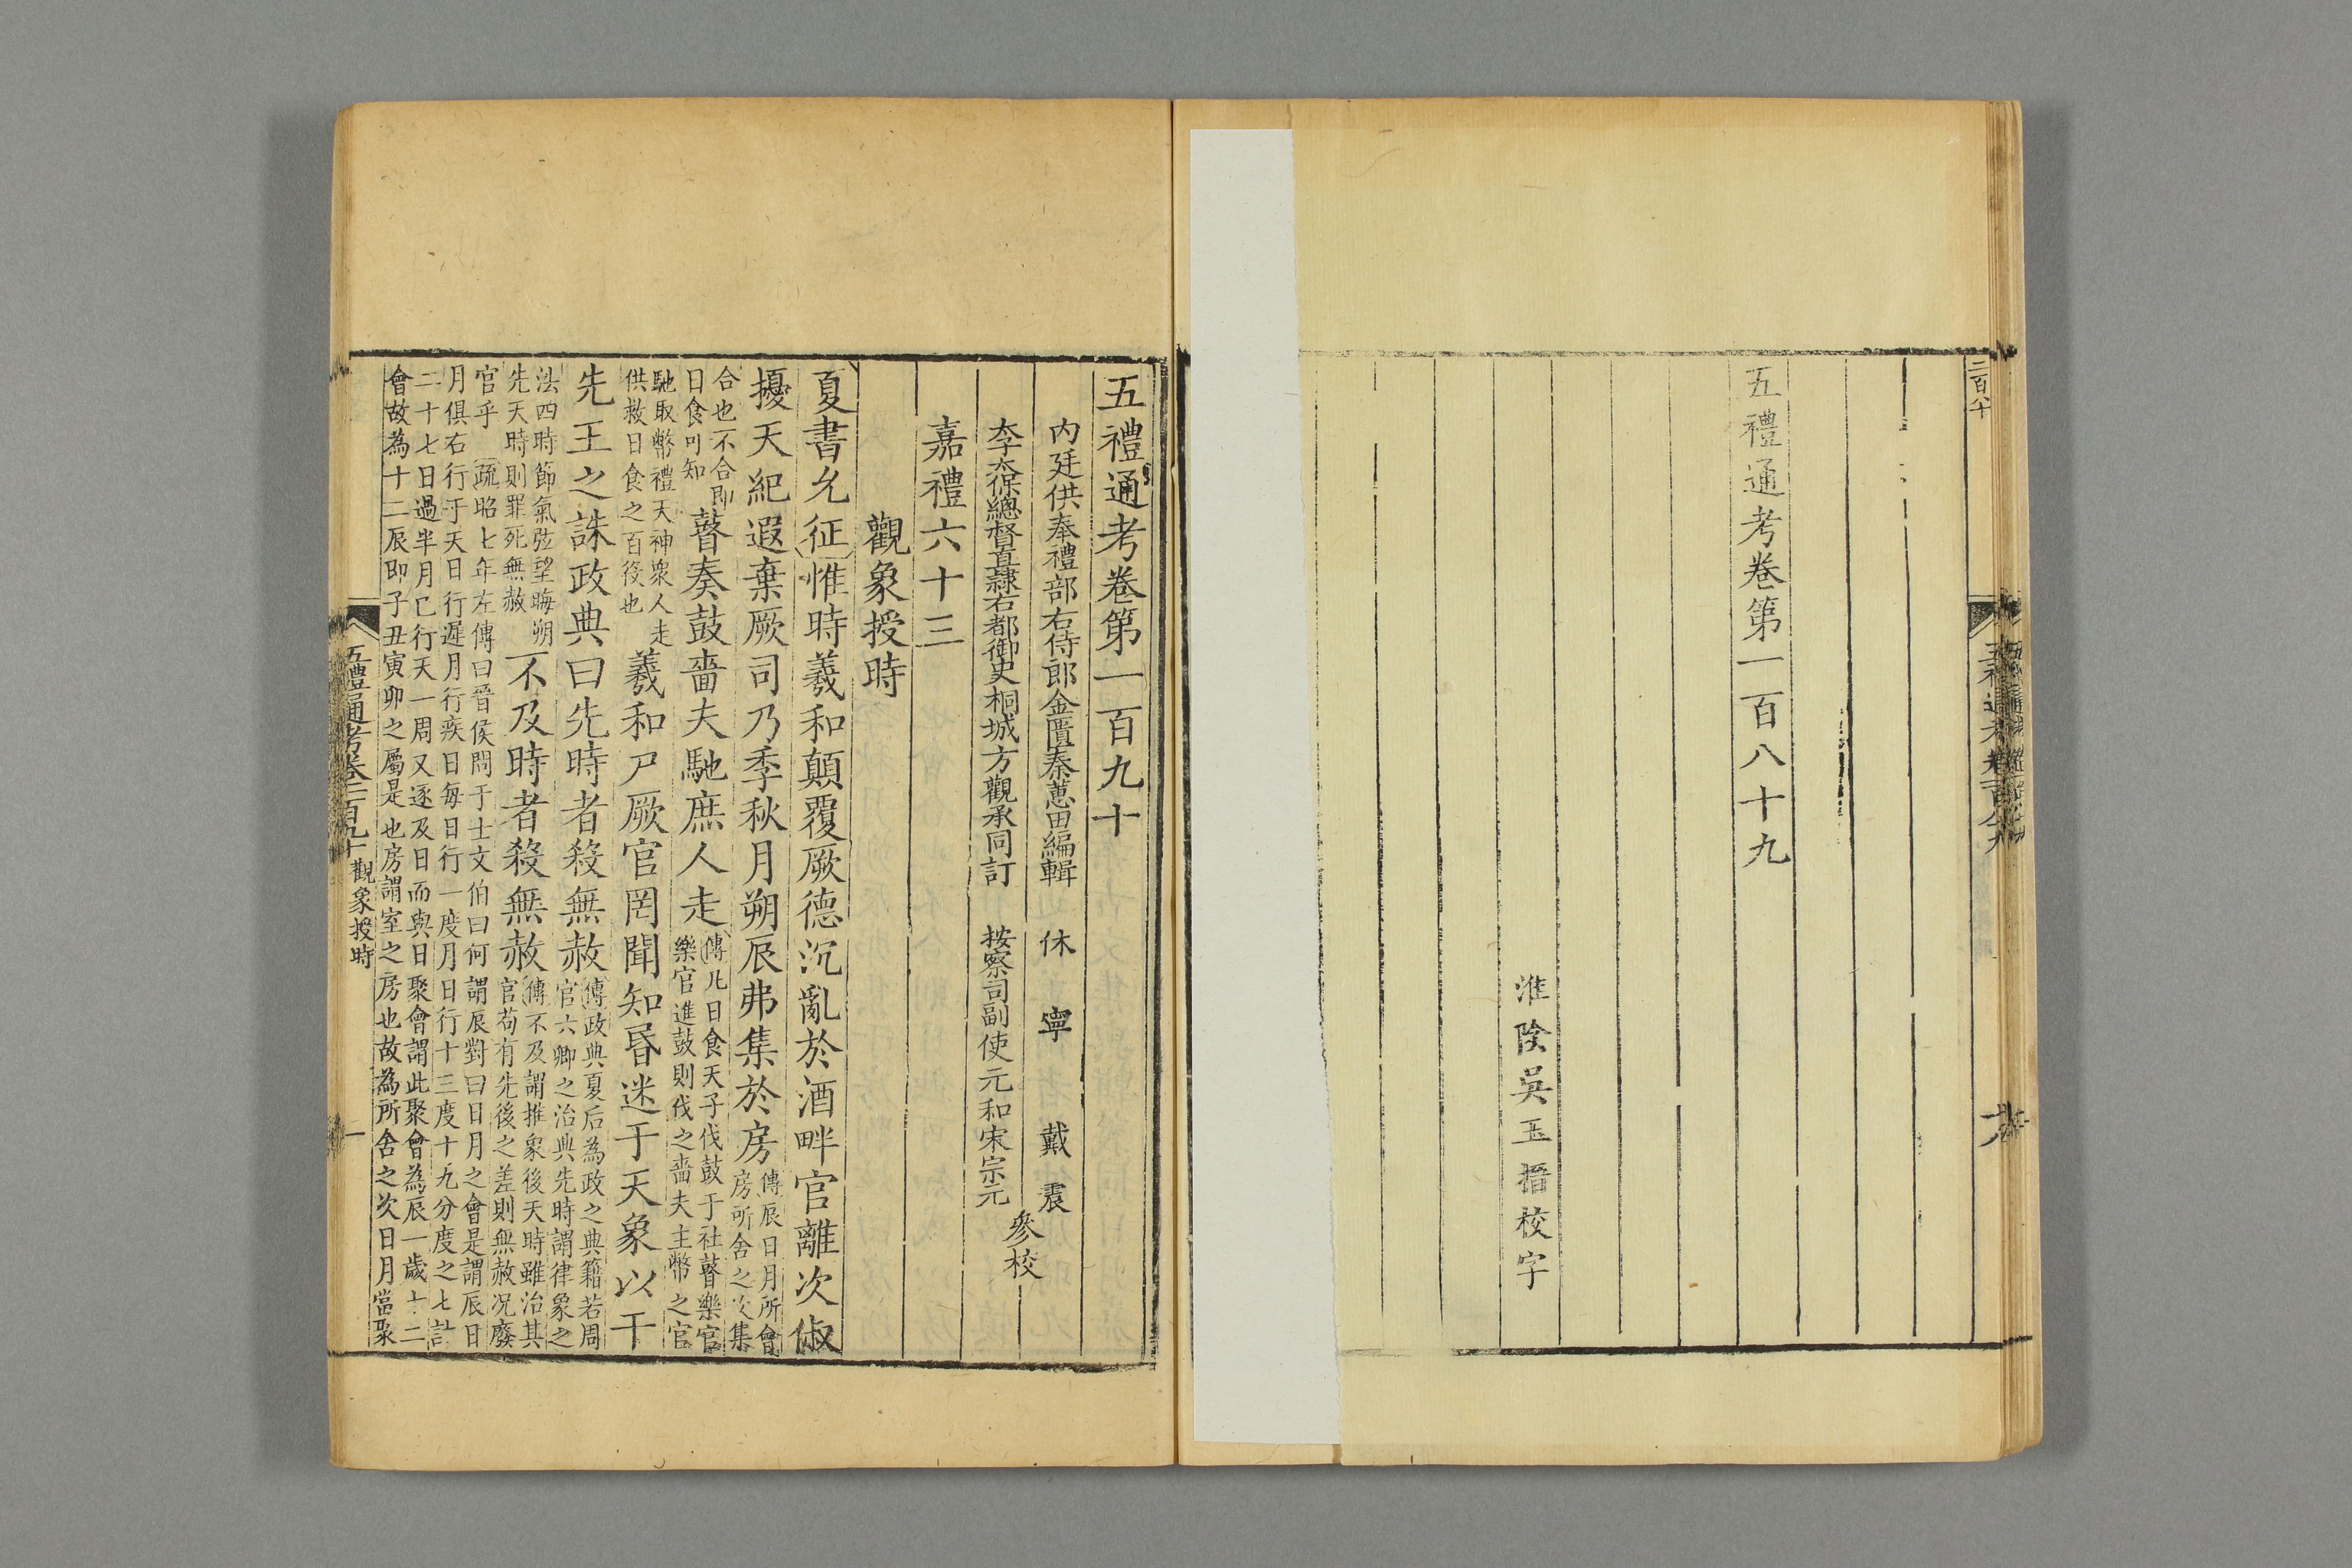 二百八十
五禮通考卷第一百八十九
淮陰吳玉搢校字
五禮通考卷第一百九十
內廷供奉禮部右侍郎金匱秦蕙田編輯 休寧戴震
太子太保總督直隸右都御史桐城方觀承同訂 按察司副使元和宋宗元
參校
嘉禮六十三
觀象授時
夏書允征惟時羲和顛覆厥德沉亂於酒畔官離次俶
擾天紀遐棄厥司乃季秋月朔辰弗集於房
傳辰日月所會
房所舍之次集
合也不合即
日食可知
瞽奏鼓嗇夫馳庶人走
傳凡日食天子伐鼓于社瞽樂官
樂官進鼓則伐之嗇夫主幣之官
馳取幣禮天神眾人走
供救日食之百役也
羲和尸厥官罔聞知昏迷于天象以干
先王之誅政典曰先時者殺無赦
傳政典夏后為政之典籍若周
官六卿之治典先時謂律象之
法四時節氣弦望晦朔
先天時則罪死無赦
不及時者殺無赦
傳不及謂推象後天時雖治其
官苟有先後之差則無赦況廢
官乎 疏昭七年左傳曰晉侯問于士文伯曰何謂辰對曰日月之會是謂辰日
月俱右行于天日行遲月行疾日每日行一度月日行十三度十九分度之七計
二十七日過半月已行天一周又逐及日而與日聚會謂此聚會為辰一歲十二
會故為十二辰即子丑寅卯之屬是也房謂室之房也故為所舍之次日月當聚
五禮通考卷一百九十 觀象授時
一